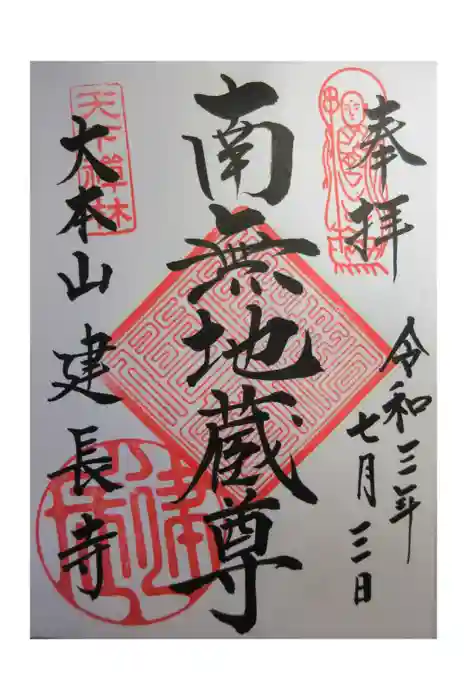 奉拝
令和三年
七月三日
南無地蔵尊
天下禅林
大本山 建長寺